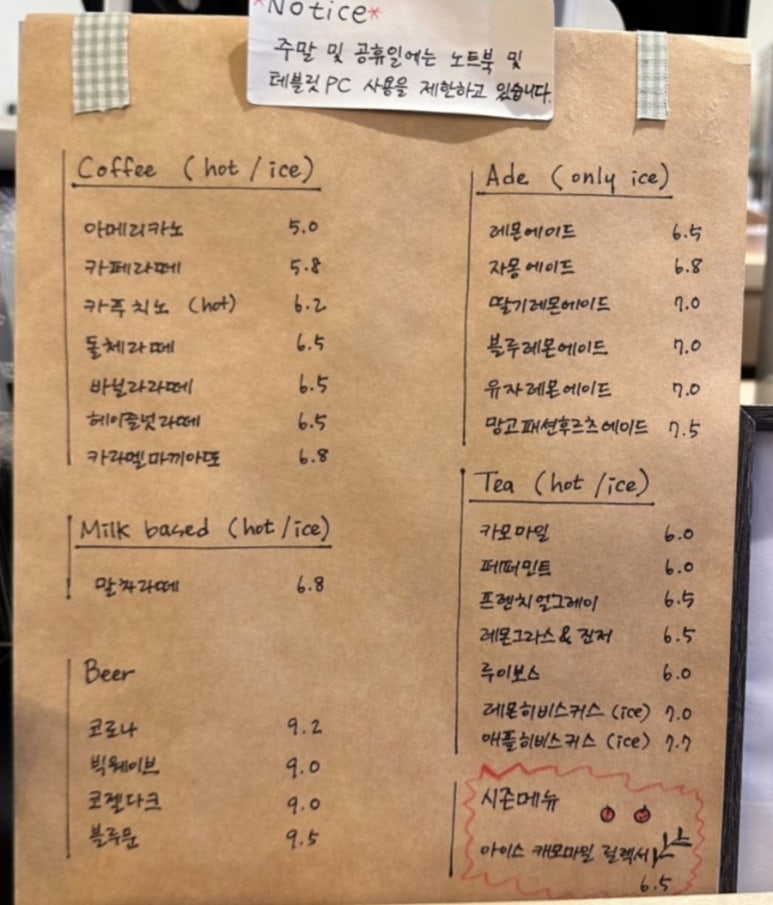 *Notice*
주말 및 공휴일에는 노트북 및
테블릿 PC 사용을 제한하고 있습니다.
Coffee (hot / ice)
아메리카노 5.0
카페라떼 5.8
카푸치노 (hot) 6.2
돌체라떼 6.5
바닐라라떼 6.5
헤이즐넛라떼 6.5
카라멜마끼아또 6.8
Milk based (hot / ice)
말차라떼 6.8
Beer
코로나 9.2
빅웨이브 9.0
코젤다크 9.0
블루문 9.5
Ade (only ice)
레몬에이드 6.5
자몽에이드 6.8
딸기레몬에이드 7.0
블루레몬에이드 7.0
유자레몬에이드 7.0
망고패션후르츠에이드 7.5
Tea (hot / ice)
카모마일 6.0
페퍼민트 6.0
프렌치얼그레이 6.5
레몬그라스 & 진저 6.5
루이보스 6.0
레몬히비스커스 (ice) 7.0
애플히비스커스 (ice) 7.7
시즌메뉴
아이스 캐모마일 릴렉서
6.5